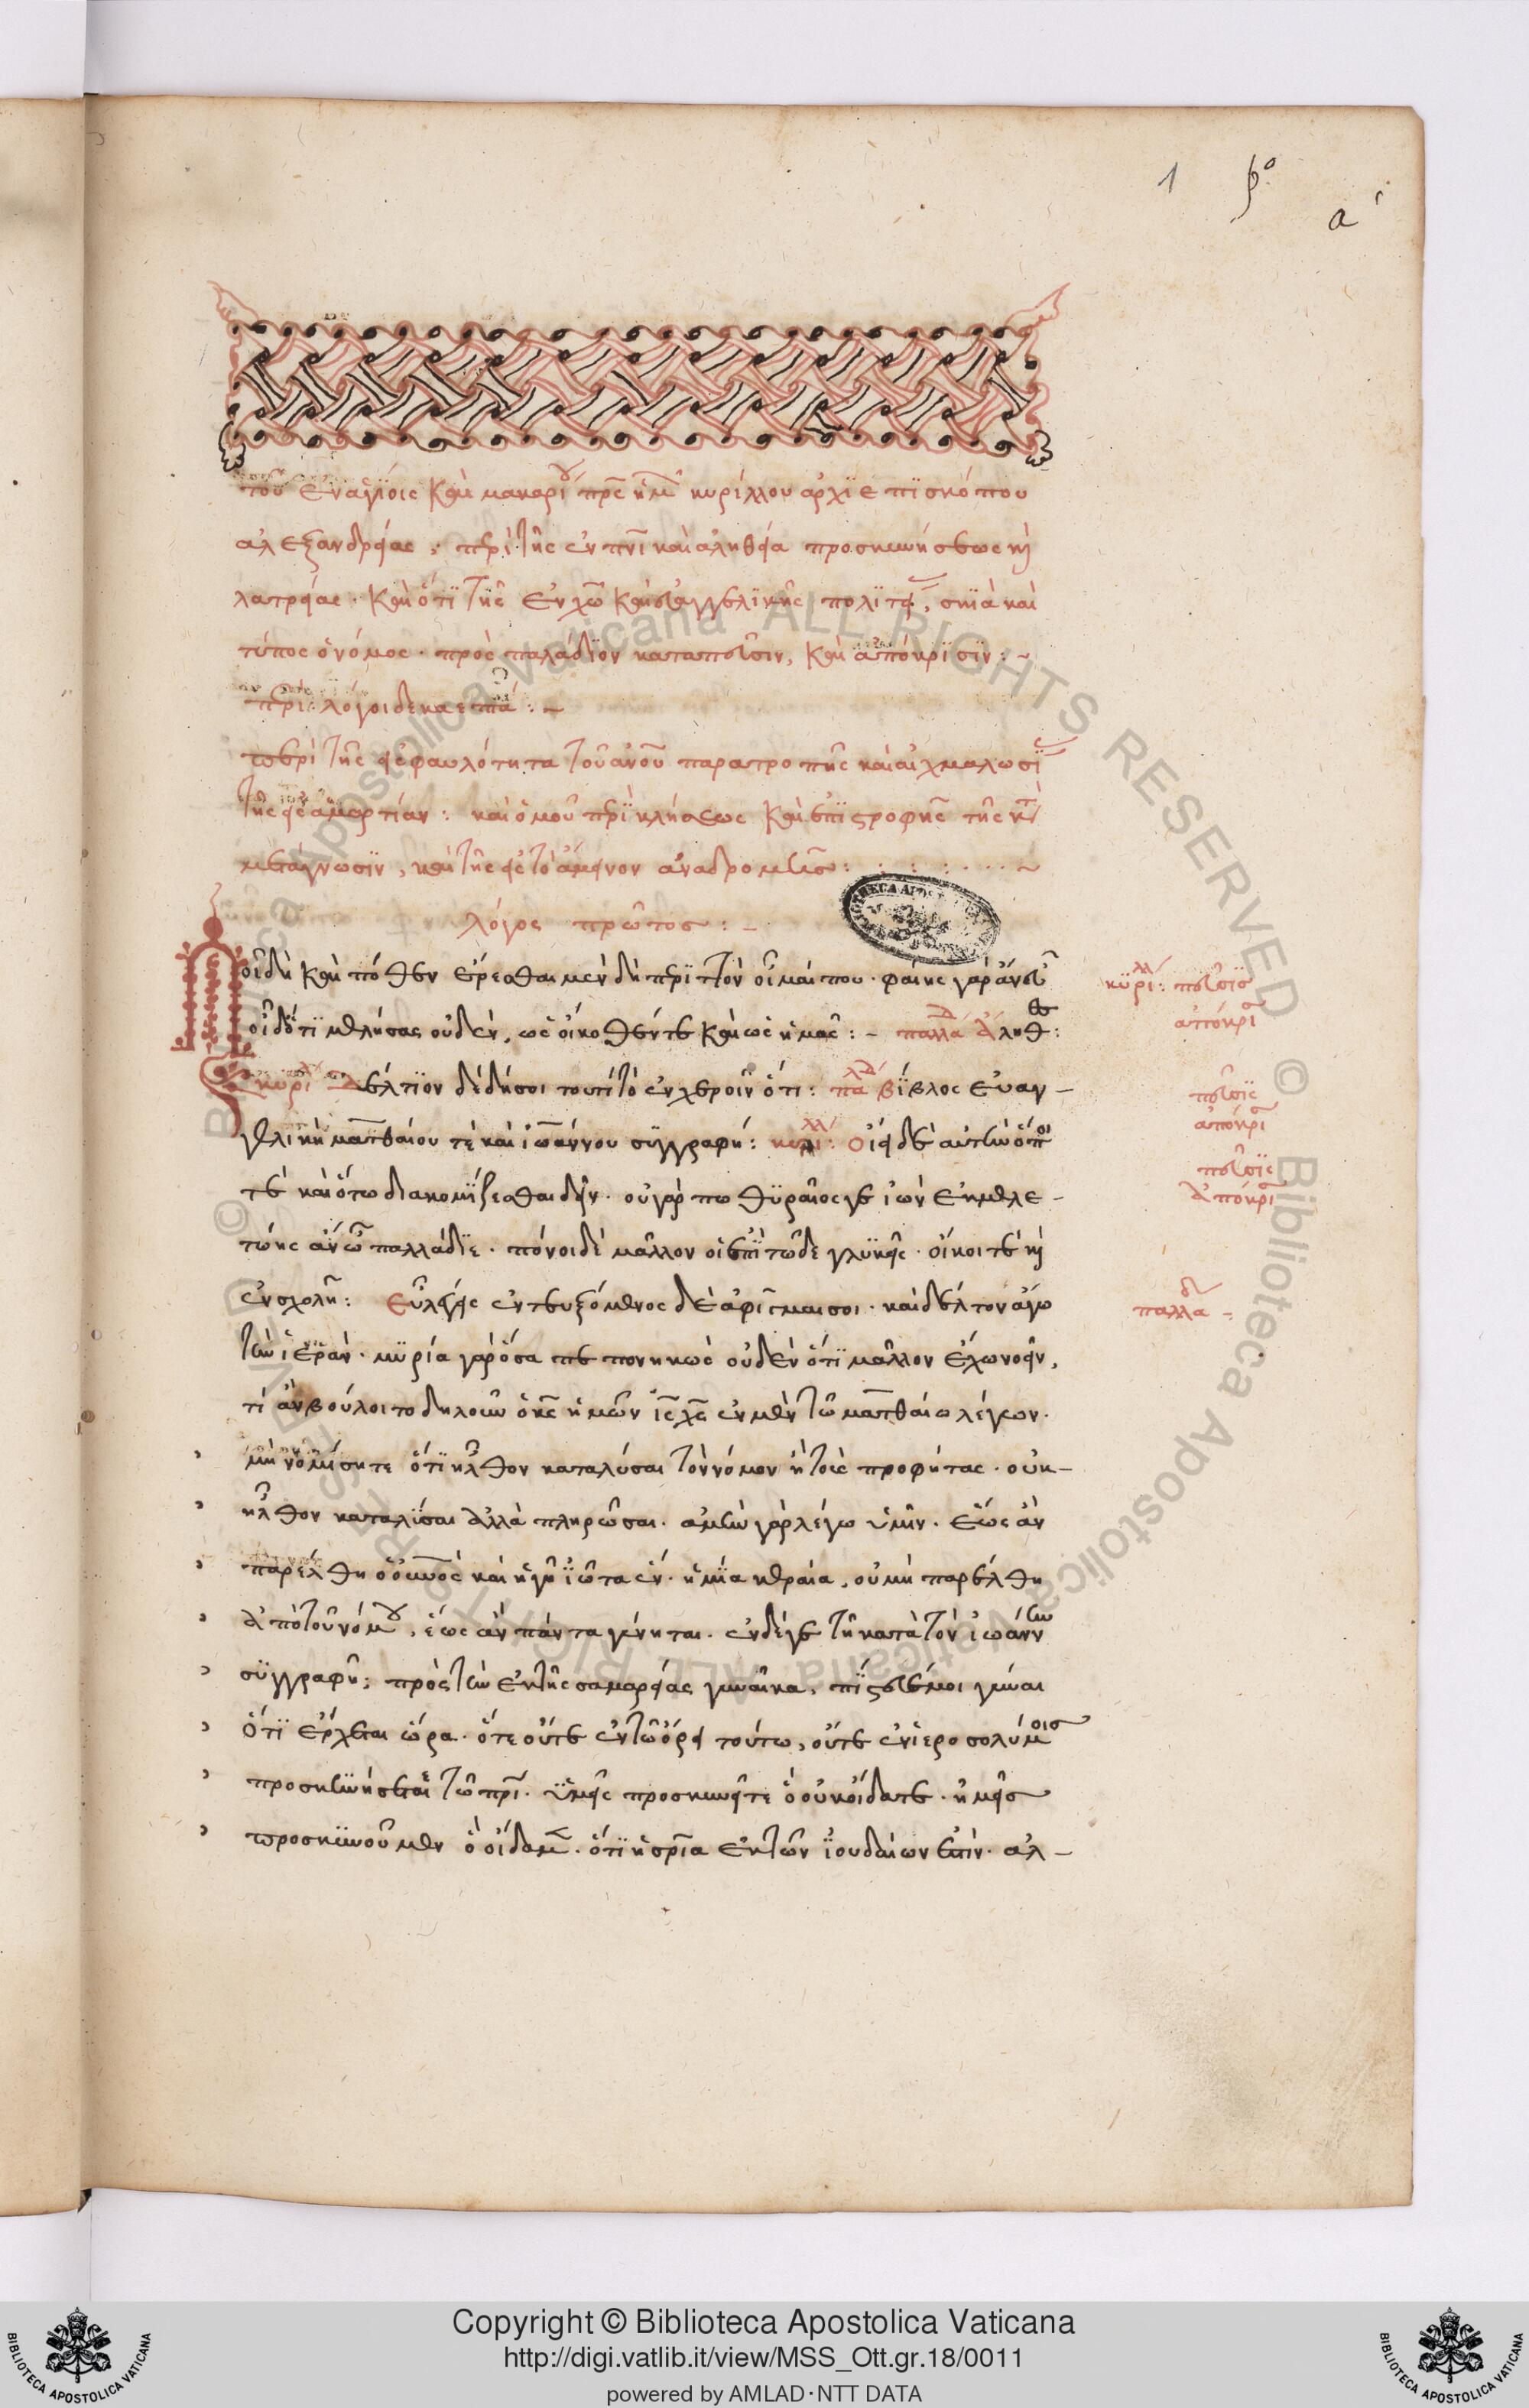 1 β° α΄
τοῦ ἐν ἁγίοις καὶ μακαρίου πρς ἡμ κυρίλλου ἀρχιεπισκόπου
ἀλεξανδρείας · περὶ τῆς ἐν πνι καὶ ἀληθεία προσκυνήσεως καὶ
λατρείας · καὶ ὅτι τῆς ἐν χω καὶ εὐαγγελικῆς πολιτεί, σκιὰ καὶ
τύπος ὁ νόμος · πρὸς παλάδιον κατὰ πεῦσιν, καὶ ἀπόκρισιν : ~
λόγοι δεκαεπτά : ~
περὶ τῆς εἰς φαυλότητα τοῦ ανου παρατροπῆς καὶ αἰχμαλωσί
τῆς εἰς ἁμαρτίαν : καὶ ὁμοῦ περὶ κλήσεως καὶ ἐπιστροφῆς τῆς κτ
μετάγνωσιν, καὶ τῆς εἰς τὸ ἄμεινον ἀναδρομῆς : · : · : · · · ~
λόγος πρῶτος : ~
Ποῖ δὴ καὶ πόθεν ἔρεσθαι μὲν δὴ περιττὸν οἶμαί που · φαίης γὰρ ἂν εὖ
οἶδ ὅτι μελήσας οὐδὲν, ὡς οἴκοθέν τε καὶ ὡς ἡμᾶς : ~ παλλά ἀληθ :
κυρί δελτίον δὲ δή σοι τουτὶ τὸ ἐν χεροῖν ὅτι : πα βίβλος εὐαγ-
γελικὴ ματθαίου τὲ καὶ ἰωάννου συγγραφή : κυρι : οἴει δὲ αὐτὴν ὅποι
τὲ καὶ ὅτω διακομίζεσθαι δεῖν · οὐ γάρ πω θυραῖός γε ἰὼν ἐκμελε-
τώης ἂν ὦ παλλάδιε · πόνοι δὲ μᾶλλον οἱ ἐπὶ τῶδε γλυκεῖς · οἴκοι τὲ καὶ
ἐν σχολῆ : εὖ λέγεις ἐντευξόμενος δὲ ἀφῖγμαί σοι · καὶ δέλτον ἄγω
τὴν ἱεράν · μυρία γὰρ ὅσα πεπονηκὼς οὐδὲν ὅτι μᾶλλον ἔχω νοεῖν,
τί ἂν βούλοιτο δηλοῦν ὁ κς ἡμῶν ις χς ἐν μὲν τῶ ματθαίω λέγων ·
μὴ νομίσητε ὅτι ἦλθον καταλύσαι τὸν νόμον ἢ τοὺς προφήτας · οὐκ-
ἦλθον καταλύσαι ἀλλὰ πληρῶσαι · ἀμὴν γὰρ λέγω ὑμῖν · ἕως ἂν
παρέλθη ὁ ουνος καὶ ἡ γῆ ἰῶτα ἓν · ἢ μία κεραία, οὐ μὴ παρέλθη
ἀπὸ τοῦ νόμου, ἕως ἂν πάντα γένηται · ἐν δέ γε τῆ κατὰ τὸν ἰωάννην
συγγραφῆ ; πρὸς τὴν ἐκ τῆς σαμαρείας γυναῖκα, πίστευέ μοι γύναι
ὅτι ἔρχεται ὥρα · ὅτε οὔτε ἐν τῶ ὄρει τούτω, οὔτε ἐν ἱεροσολύμοις
προσκυνήσεται τῶ πρι · ὑμεῖς προσκυνεῖτε ὃ οὐκ οἴδατε · ἡμεῖς
προσκυνοῦμεν ὃ οἴδαμ · ὅτι ἡ σρια ἐκ τῶν ἰουδαίων ἐστίν · ἀλ-
κυρι : πεῦσις
ἀπόκρισ
πεῦσις
ἀπόκρισ
πεῦσις
ἀπόκρισ
παλλαδ -
Copyright © Biblioteca Apostolica Vaticana
http://digi.vatlib.it/view/MSS_Ott.gr.18/0011
powered by AMLAD·NTT DATA
BIBLIOTECA APOSTOLICA VATICANA
BIBLIOTECA APOSTOLICA VATICANA